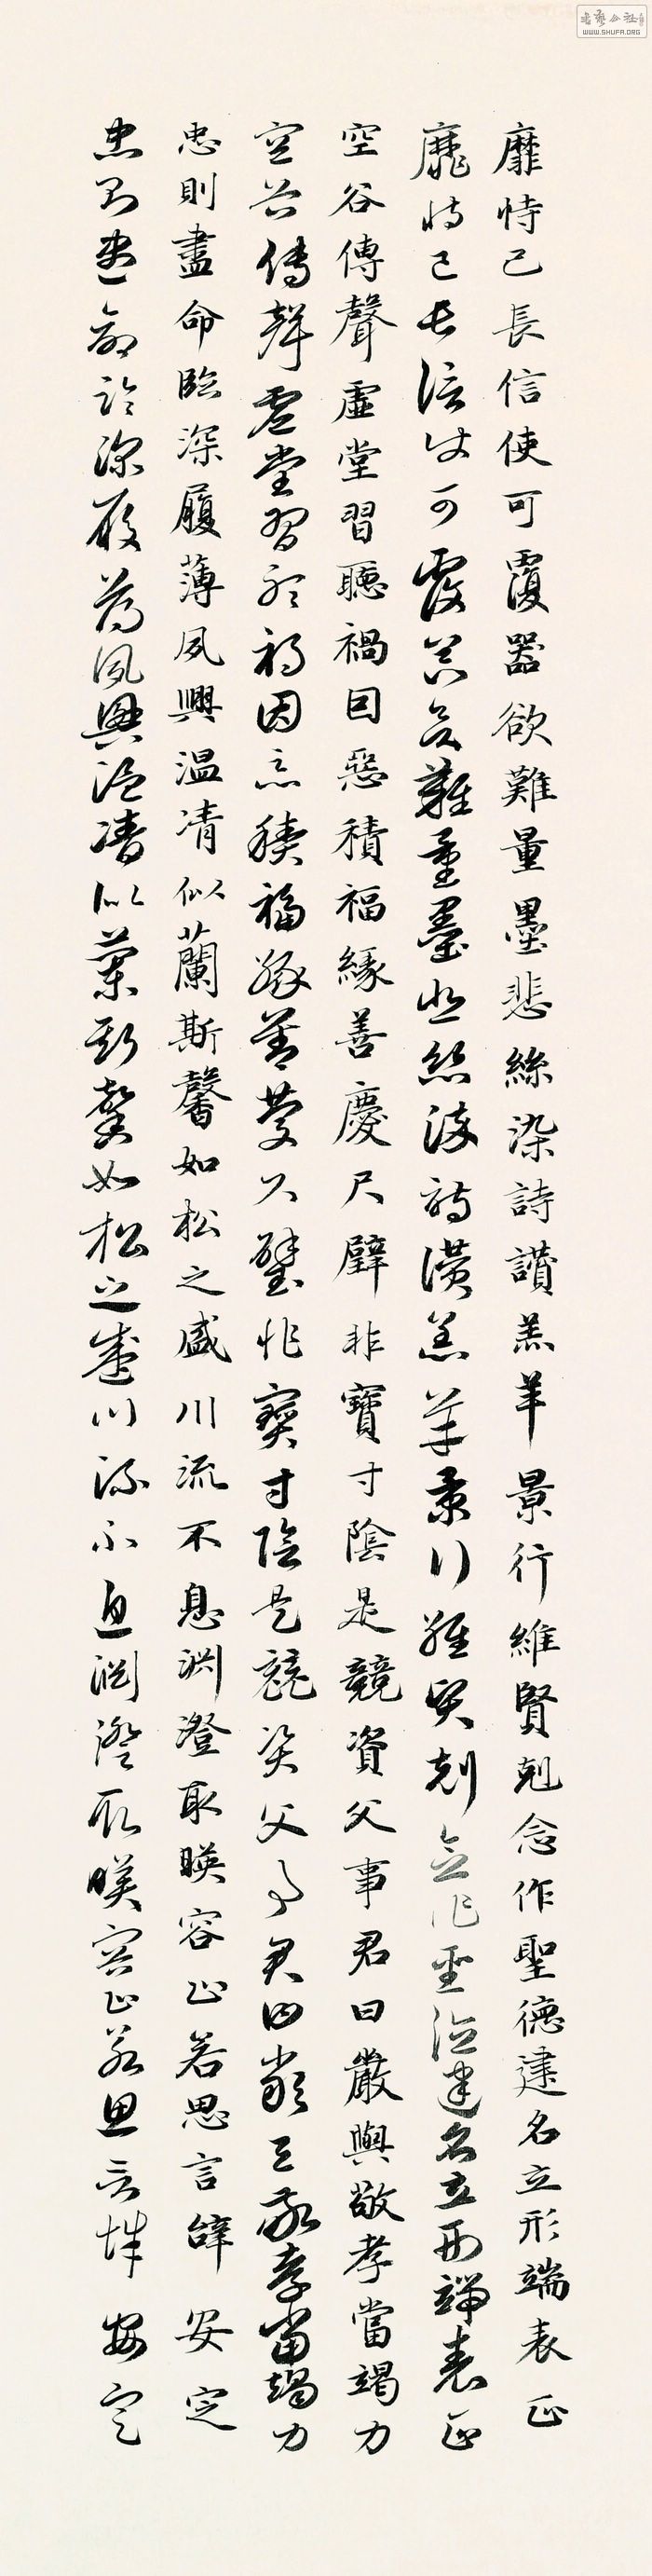 靡恃己長信使可覆器欲難量墨悲絲染詩讚羔羊景行維賢剋念作聖德建名立形端表正
靡恃己長信使可覆器欲難量墨悲絲染詩讚羔羊景行維賢剋念作聖德建名立形端表正
空谷傳聲虛堂習聽禍因惡積福緣善慶尺璧非寶寸陰是競資父事君曰嚴與敬孝當竭力
空谷傳聲虛堂習聽禍因惡積福緣善慶尺璧非寶寸陰是競資父事君曰嚴與敬孝當竭力
忠則盡命臨深履薄夙興溫凊似蘭斯馨如松之盛川流不息淵澄取暎容止若思言辭安定
忠則盡命臨深履薄夙興溫凊似蘭斯馨如松之盛川流不息淵澄取暎容止若思言辭安定
WWW.SHUFA.ORG